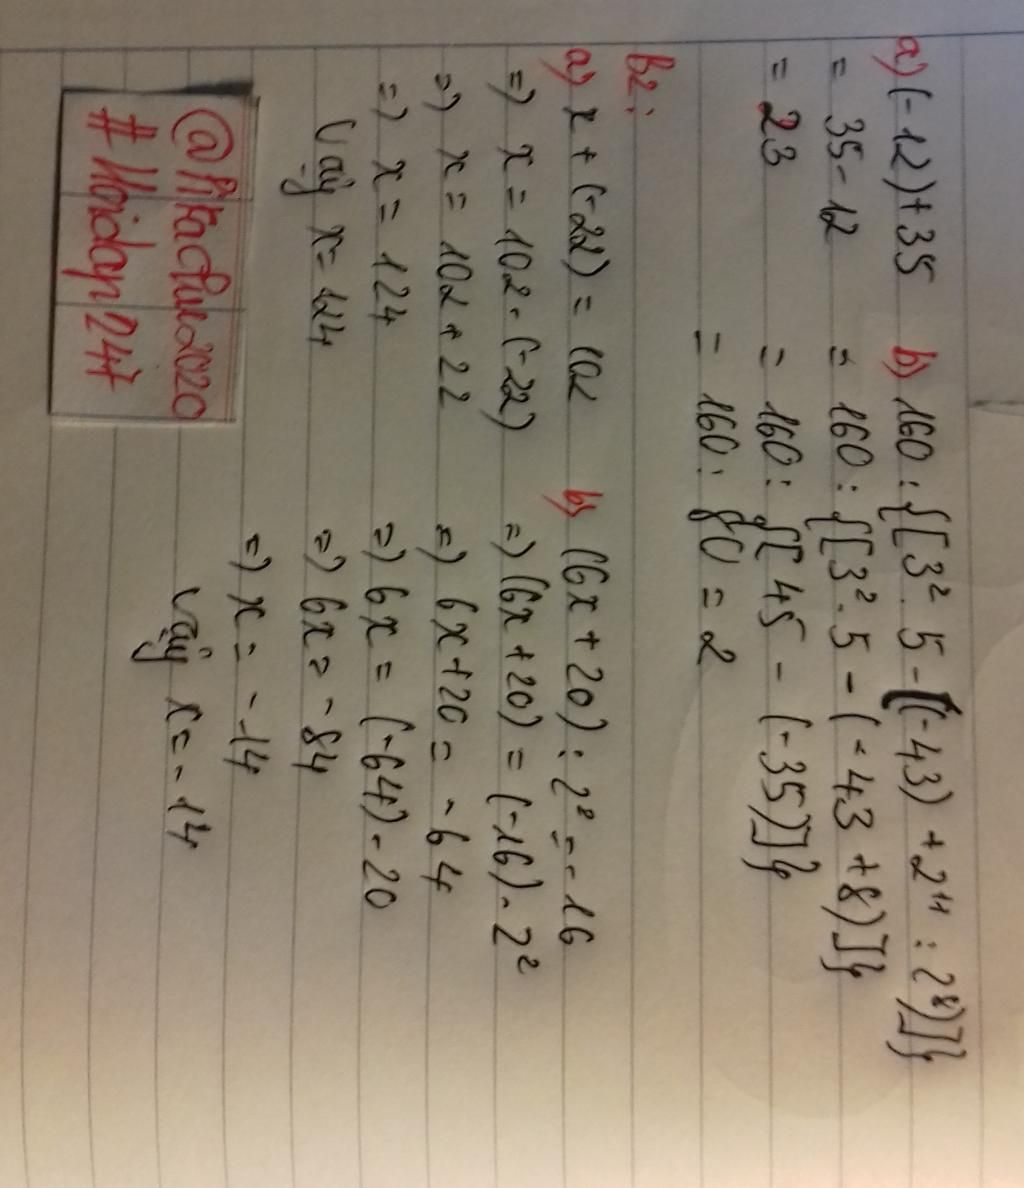 a) (-12)+35
= 35-12
= 23
b) 160 : {[3². 5 - ((-43) + 2¹¹ : 2⁸)]}
= 160 : {[3². 5 - (-43 + 8)]}
= 160 : {[45 - (-35)]}
= 160 : 80 = 2
B2:
a) x + (-22) = 102
=) x = 102 - (-22)
=) x = 102 + 22
=) x = 124
Vậy x = 124
b) (6x + 20) : 2² = -16
=) (6x + 20) = (-16) . 2²
=) 6x + 20 = -64
=) 6x = (-64) - 20
=) 6x = -84
=) x = -14
Vậy x = -14
@Pikachu2020
#Hoidap247